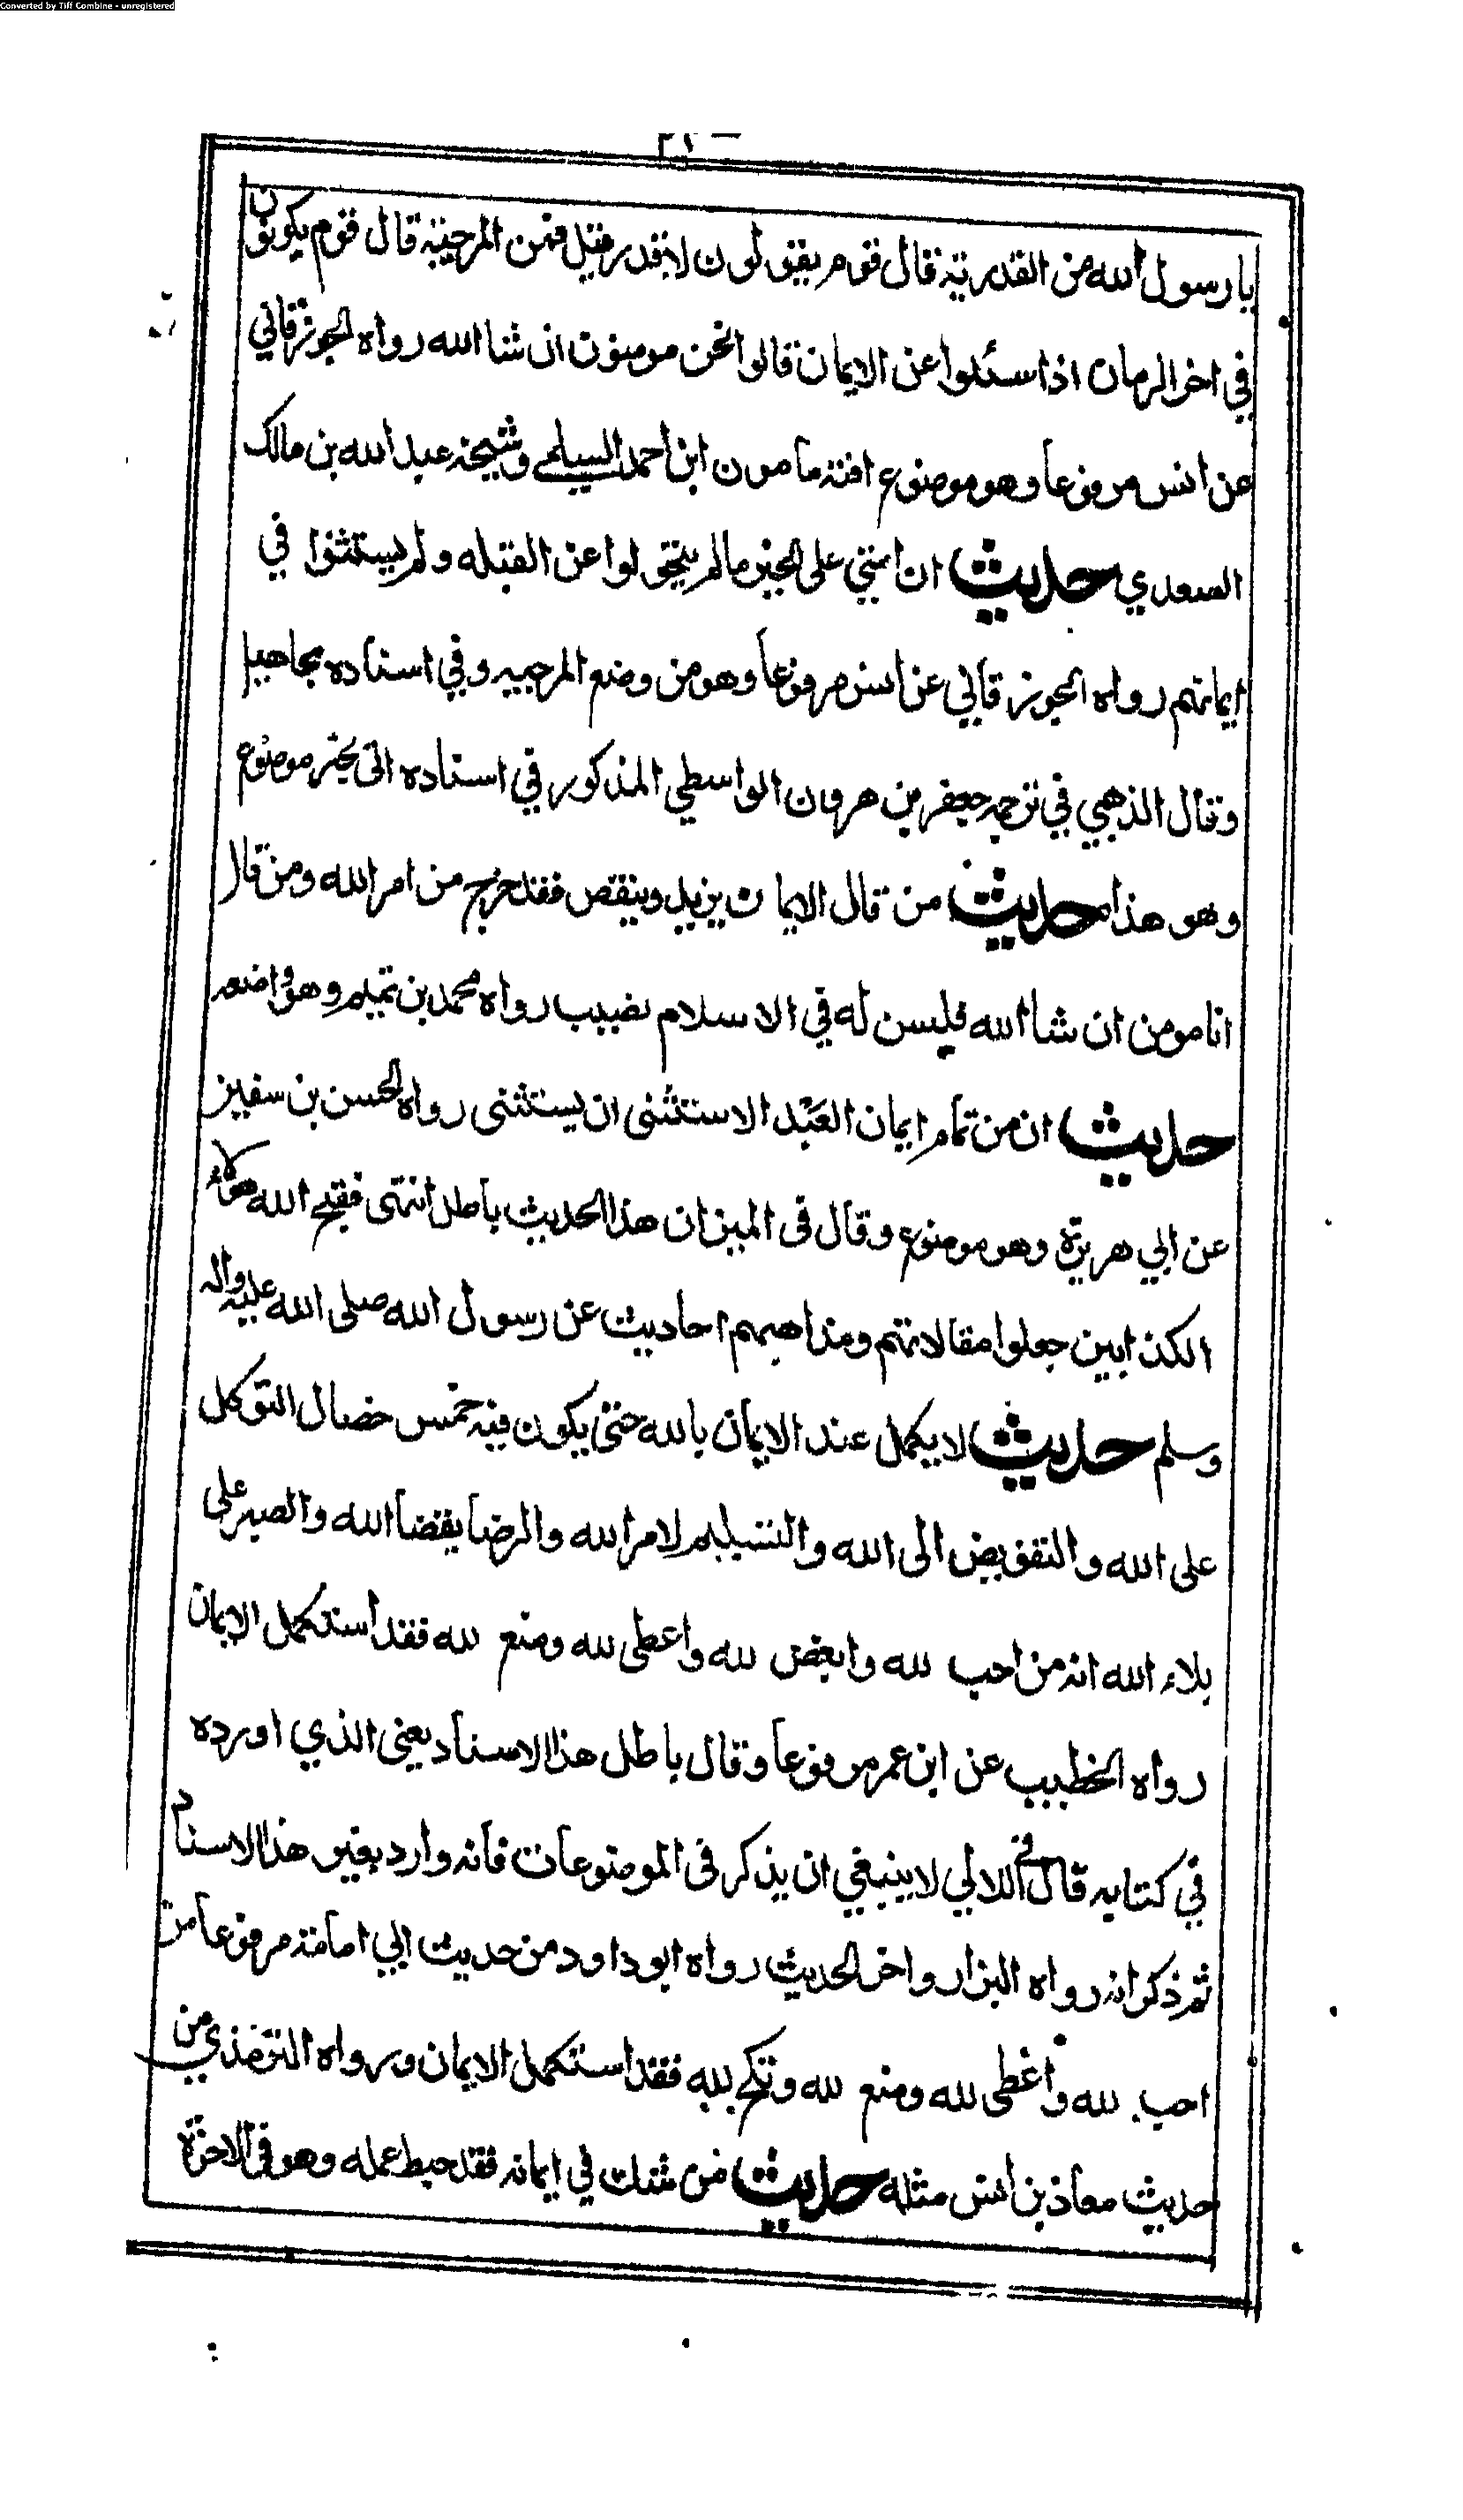 Converted by Tiff Combine - unregistered
يا رسول الله من القدرية قال قوم يقولون لا قدر قيل فمن المرجية قال قوم يكونون
في اخر الزمان اذا سئلوا عن الايمان قالوا نحن مومنون ان شا الله رواه الجوزقاني
عن انس مرفوعا وهو موضوع افته مامون ابن احمد السلمي وشيخه عبد الله بن مالك
السعدي حديث ان امتي على الخير ما لم يتحولوا عن القبله ولم يستثنوا في
ايمانهم رواه الجوزقاني عن انس مرفوعا وهو من وضع المرجيه وفي اسناده مجاهيل
وقال الذهبي في ترجمه جعفر بن هرون الواسطي المذكور في اسناده اتى بخبر موضوع
وهو هذا حديث من قال الايمان يزيد وينقص فقد خرج من امر الله ومن قال
انا مومن ان شا الله فليس له في الاسلام نصيب رواه محمد بن تميم وهو واضعه
حديث ان من تمام ايمان العَبْد الاستثنى ان يستثنى رواه الحسن بن سفين
عن ابي هريرة وهو موضوع وقال فى الميزان هذا الحديث باطل انتهى فقبح الله هولاء
الكذابين جعلوا مقالاتهم ومذاهبهم احاديث عن رسول الله صلى الله عليه واله
وسلم حديث لا يكمل عبد الايمان بالله حتى يكون فيه خمس خصال التوكل
على الله والتفويض الى الله والتسليم لامر الله والرضا بقضا الله والصبر على
بلاء الله انه من احب لله وابغض لله واعطى لله ومنع لله فقد استكمل الايمان
رواه الخطيب عن ابن عمر مرفوعا وقال باطل هذا الاسناد يعنى الذي اورده
في كتابه قال في اللالي لا ينبغي ان يذكر فى الموضوعات فانه وارد بغير هذا الاسناد
ثم ذكر انه رواه البزار واخر الحديث رواه ابو داود من حديث ابي امامة مرفوعا من
احب لله واعطى لله ومنع لله ونكح لله فقد استكمل الايمان ورواه الترمذي من
حديث معاذ بن انس مثله حديث من شك في ايمانه فقد حبط عمله وهو فى الاخرة